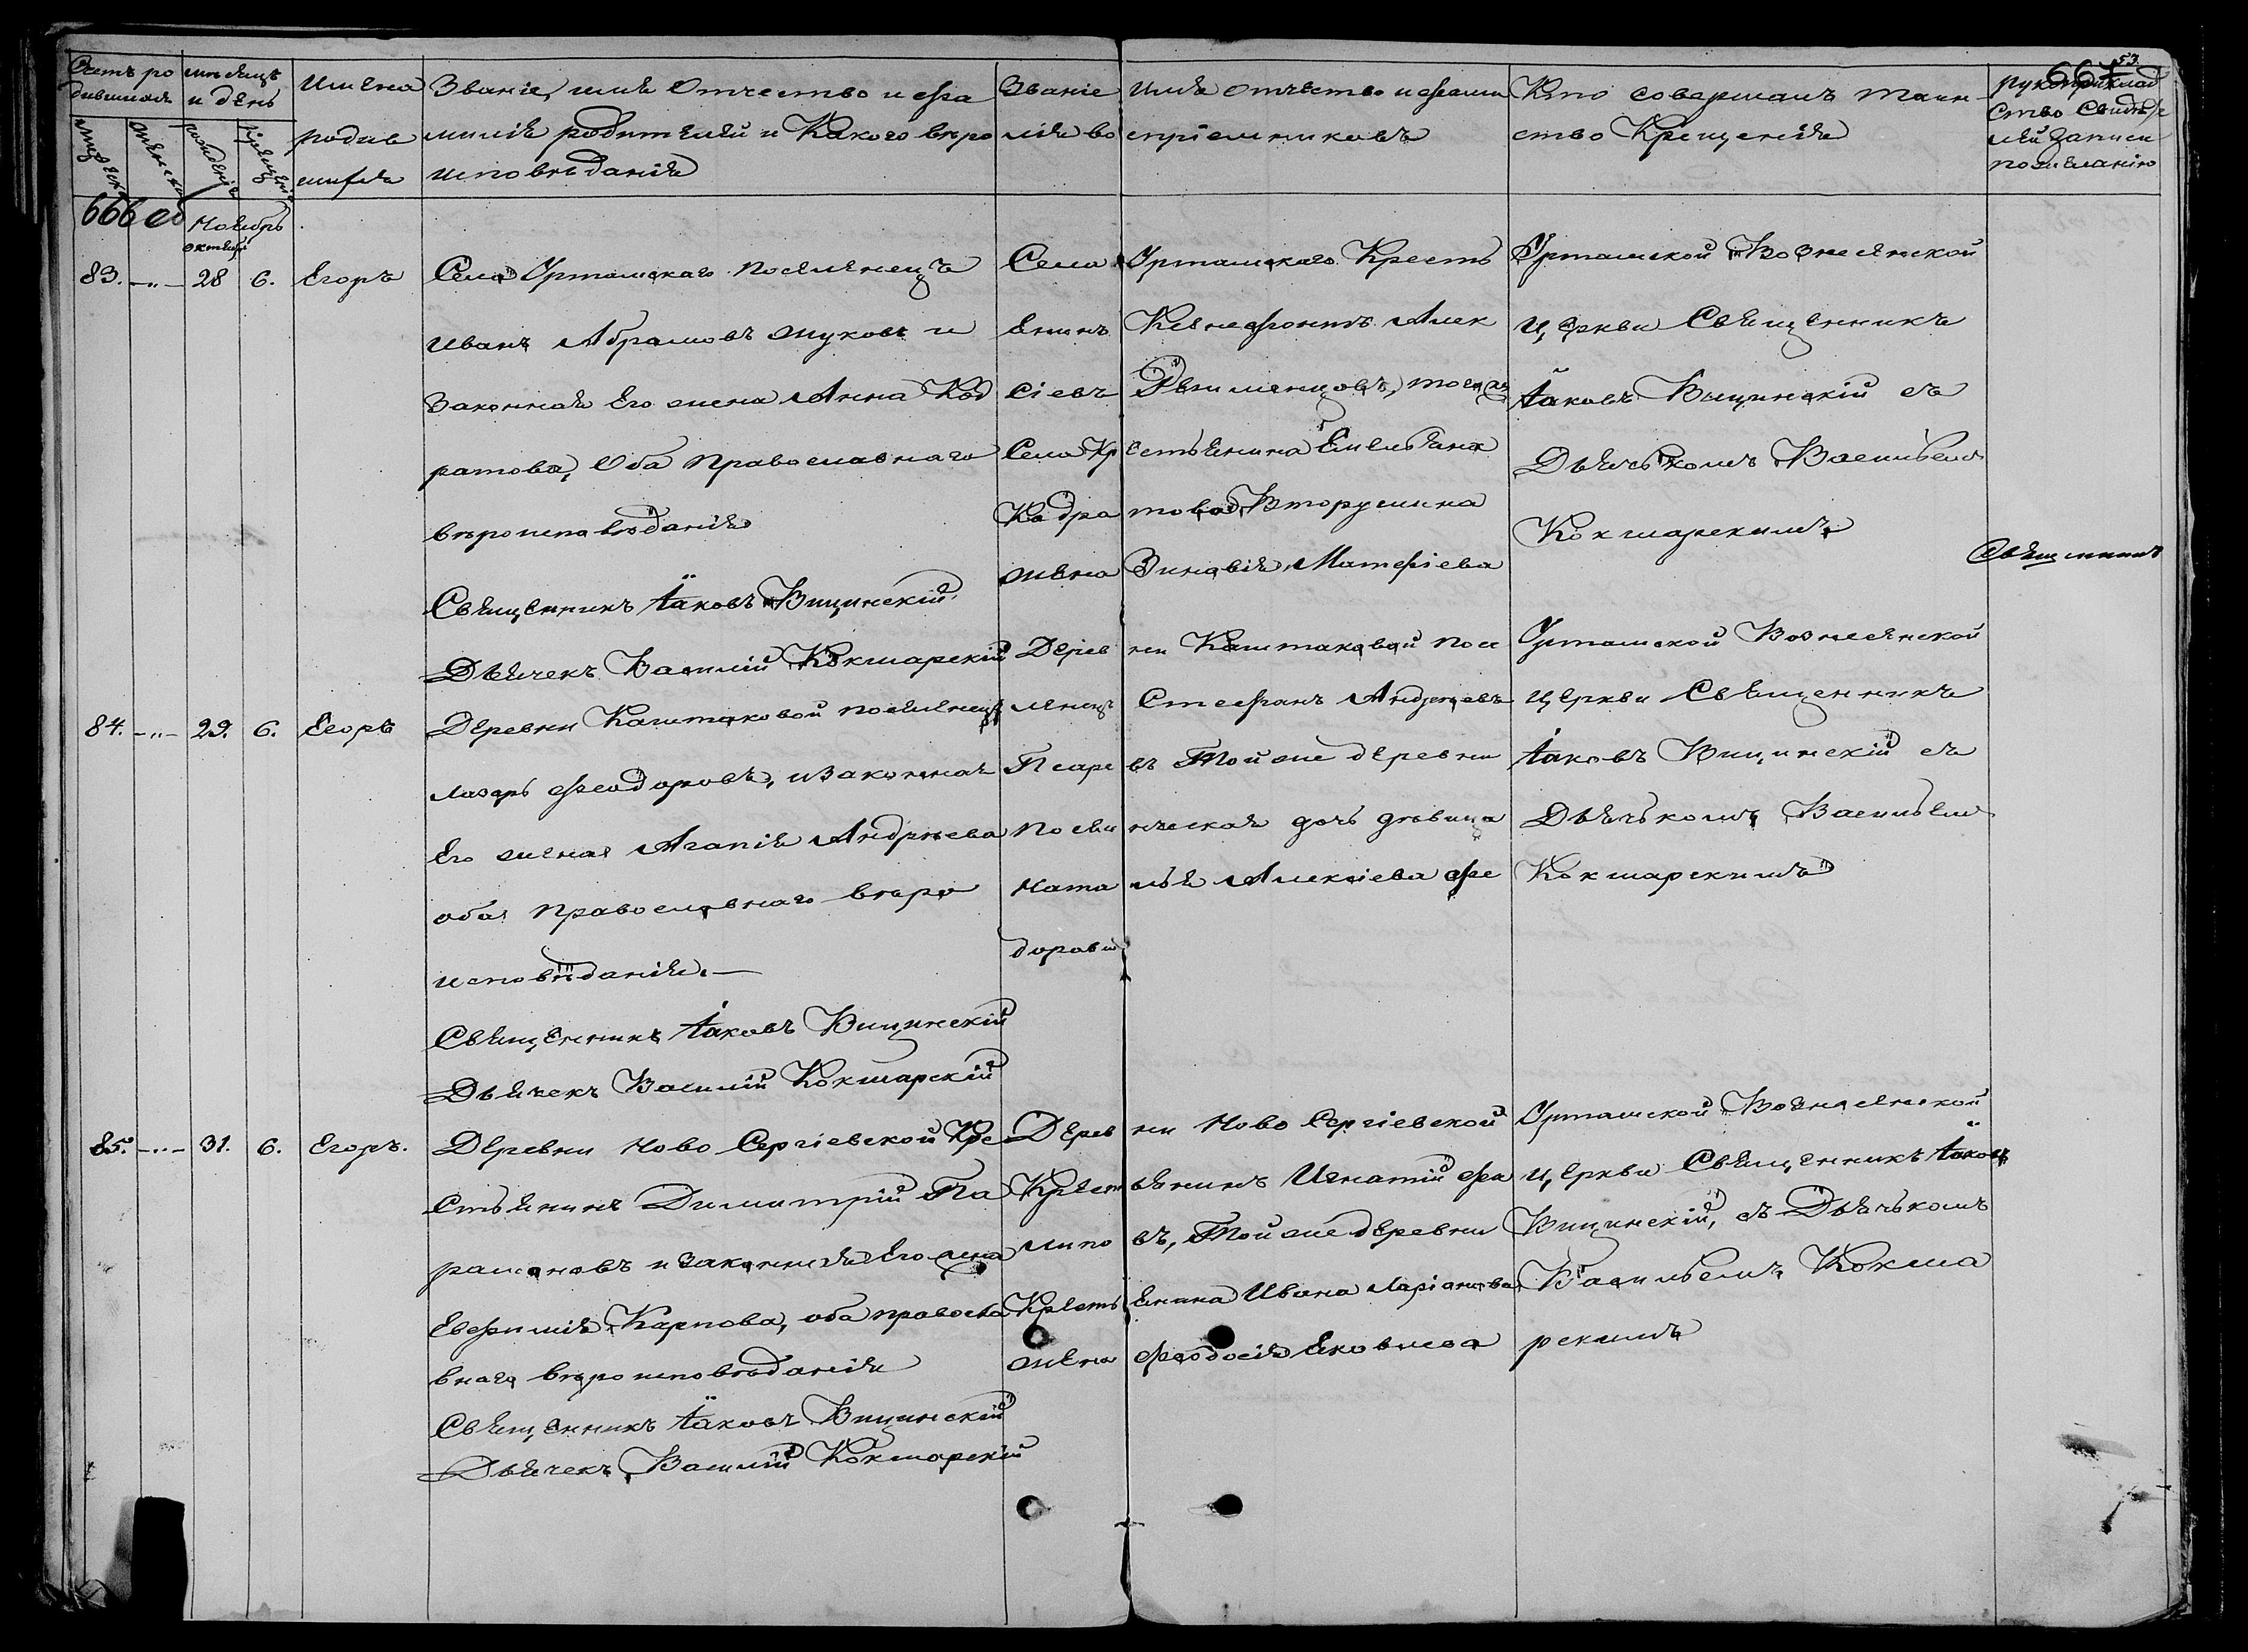 53.
667
Счетъ ро
дившихся
мѣсяцъ
и день
Имена
родив
шихся
Званіе, имя Отчество и фа
милія родителей и Какого вѣро
исповѣданія
Званіе имя отчество и фами
лія воспріемниковъ
Кто совершалъ таин
ство Крещенія
рукоприклад
ство Свидѣте
лей записи
по желанію
666 об
Ноябрь
октября
83. -„- 28 6. Егоръ
Села Урташскаго поселенецъ
Иванъ Абрамовъ Жуковъ и
законная Его жена Анна Код
ратова, Оба Православнаго
вѣроисповѣданія
Священникъ Іаковъ Вицинскій
Дьячекъ Василій Кокшарскій
Села Урташскаго Кресть
Енинъ Ксенефонтъ Алек
сіевъ
Села Крестьянина Емельяна
Кодратова Вторушина
жена Зиновія Матфіева
Урташской Вознесенской
церкви Священникъ
Іаковъ Вицинскій съ
Дьячькомъ Васильемъ
Кокшарскимъ
84. -„- 29. 6. Егоръ
Деревни Каштаковой поселенецъ
Лазарь Феодоровъ, и законная
Его жена Агапія Андреева
оба Православнаго вѣро
исповѣданія. —
Священникъ Іаковъ Вицинскій
Дьячекъ Василій Кокшарскій
Деревни Каштаковой посе
ленецъ Стефанъ Андреевъ
Псаревъ Той же деревни
дочь дѣвица
Наталья Алексіева Фе
дорова
Урташской Вознесенской
церкви Священникъ
Іаковъ Вицинскій съ
Дьячькомъ Васильемъ
Кокшарскимъ
85. -„- 31. 6. Егоръ.
Деревни Ново Сергіевской Кре
стьянинъ Димитрій Па
рамоновъ и законная Его жена
Евфимія Карпова, оба правосла
внаго вѣроисповѣданія
Священникъ Іаковъ Вицинскій
Дьячекъ Василій Кокшарскій
Деревни Ново Сергіевской
Крестьянинъ Игнатій Фи
липовъ, Той же деревни
Крестьянина Ивана Ларіонова
жена Феодосія Яковлева
Урташской Вознесенской
церкви Священникъ Іаковъ
Вицинскій, съ Дьячькомъ
Васильемъ Кокша
рскимъ